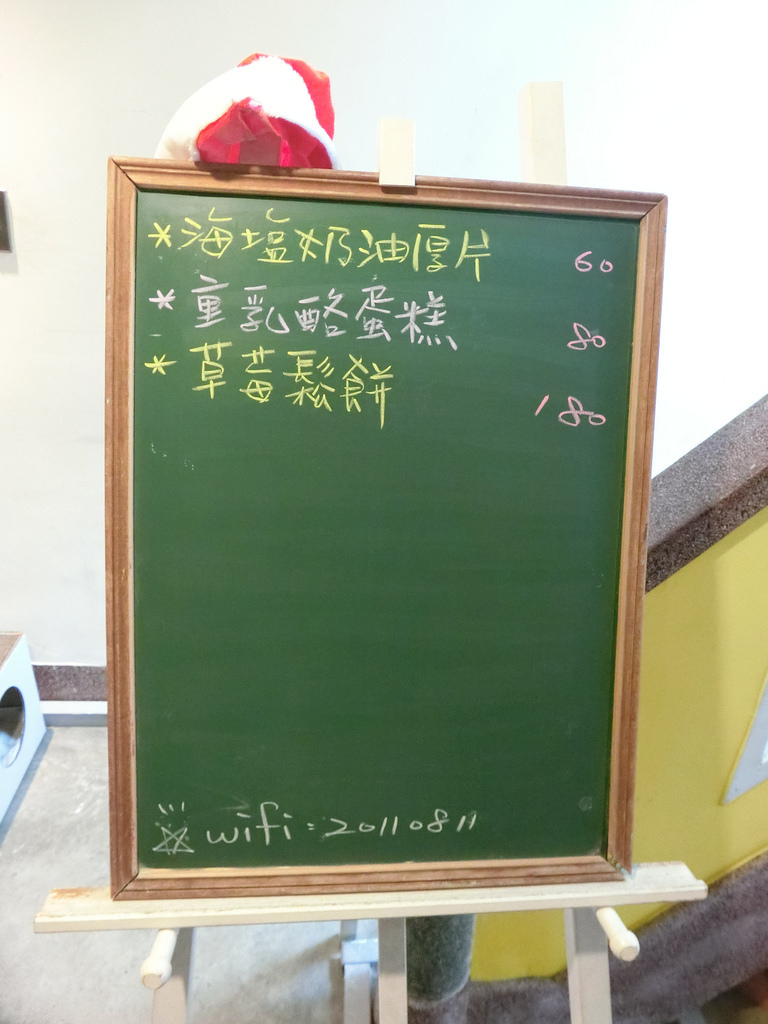 *海塩奶油厚片 60
*重乳酪蛋糕 80
*草莓鬆餅 180
wifi:20110811